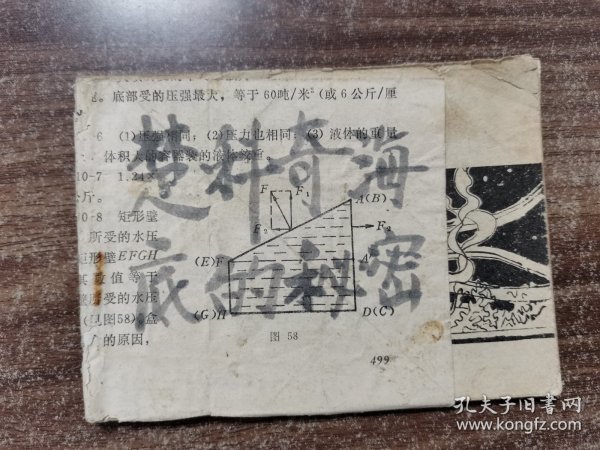 。底部受的压强最大，等于60吨/米²(或6公斤/厘
6 (1)压强相同；(2)压力也相同；(3)液体的重量
体积大的容器装的液体较重。
10-7 1.24×
公斤。
0-8 矩形壁
所受的水压
矩形壁EFGH
其数值等于
所受的水压
(见图58)。盒
的原因，
F F₁
F₂
A(B)
F₃
(E)F
A'
(G)H
D(C)
图 58
499
楚科奇海
底的秘密
孔夫子旧書网
www.kongfz.com